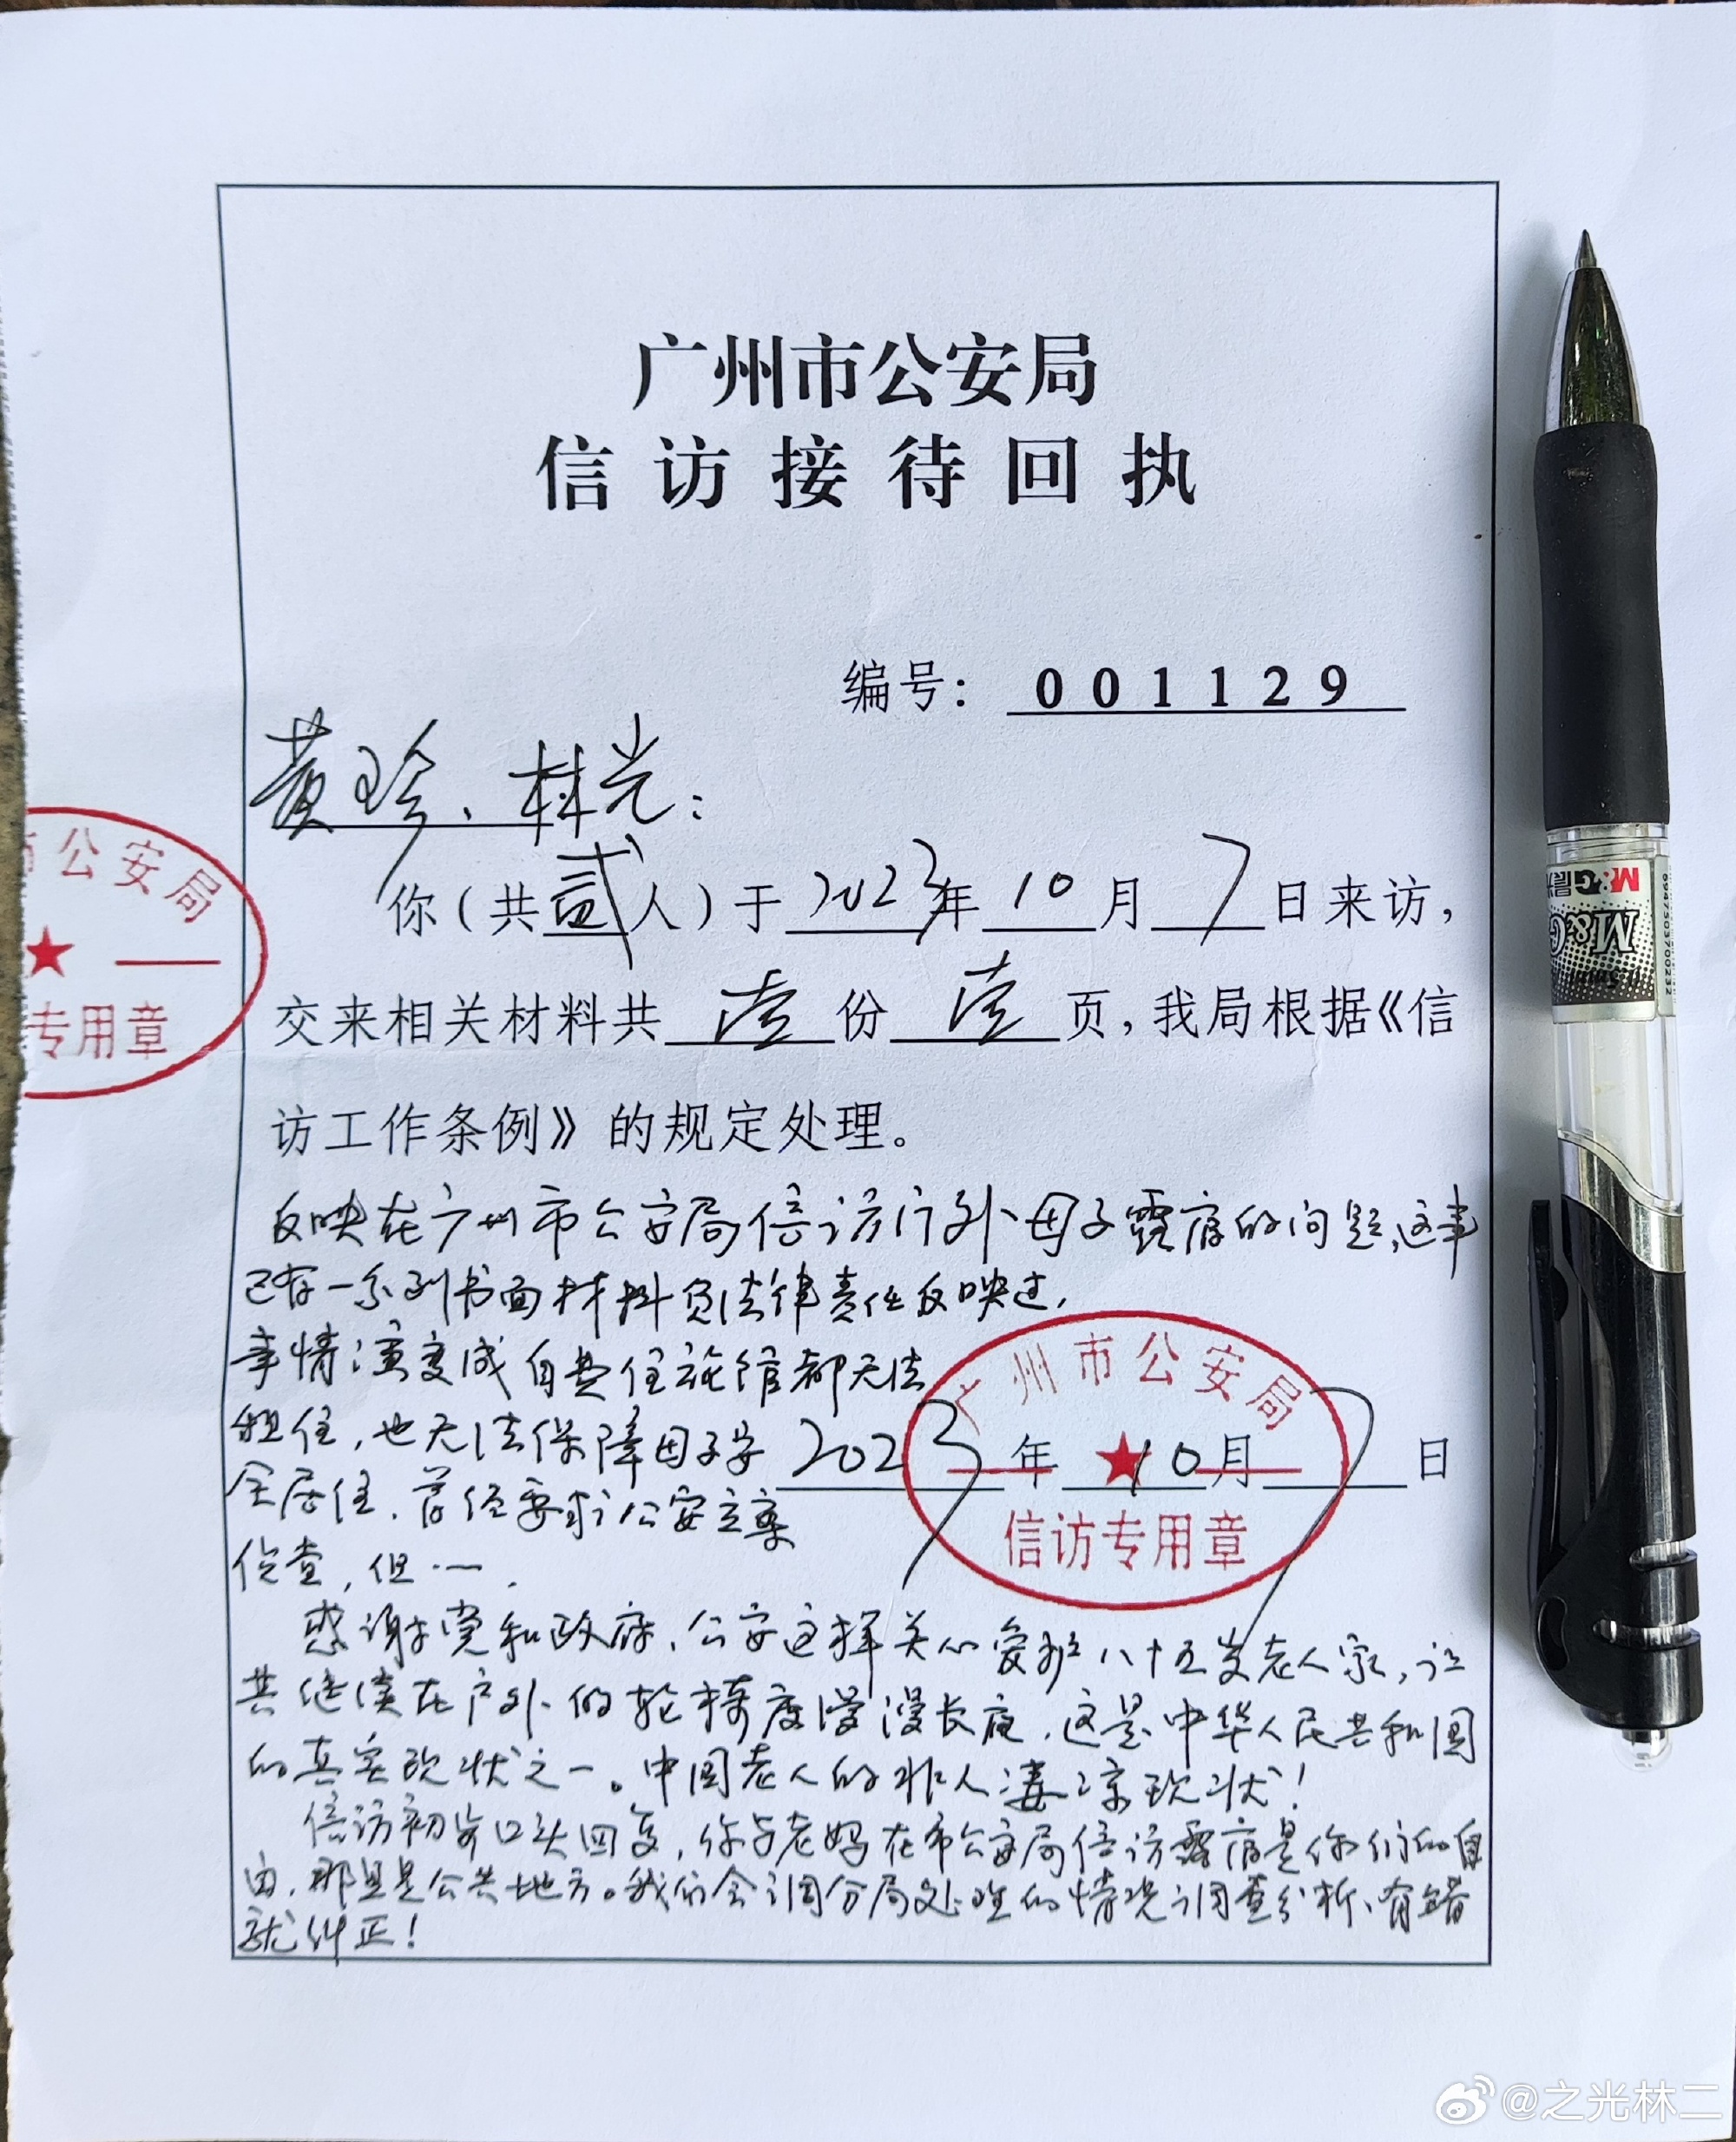 广州市公安局
信访接待回执
编号：001129
黄珍、林光：
你（共贰人）于2023年10月7日来访，
交来相关材料共壹份壹页，我局根据《信
访工作条例》的规定处理。
反映在广州市公安局信访厅外母子露宿的问题，这事
已有一系列书面材料负法律责任反映过，
事情演变成自费住旅馆都无法
租住，也无法保障母子安
全居住，曾经要求公安立案
侦查，但……。
2023年10月7日
感谢党和政府、公安这样关心爱护八十五岁老人家，让
其继续在户外的轮椅度漫漫长夜，这是中华人民共和国
的真实现状之一。中国老人的非人凄凉现状！
信访初步口头回复，你与老妈在市公安局信访露宿是你们的自
由，那里是公共地方。我们会调分局处理的情况调查分析、有错
就纠正！
市公安局
专用章
广州市公安局
信访专用章
M&G晨光
M&G
0.5mm
6947503700232
@之光林二